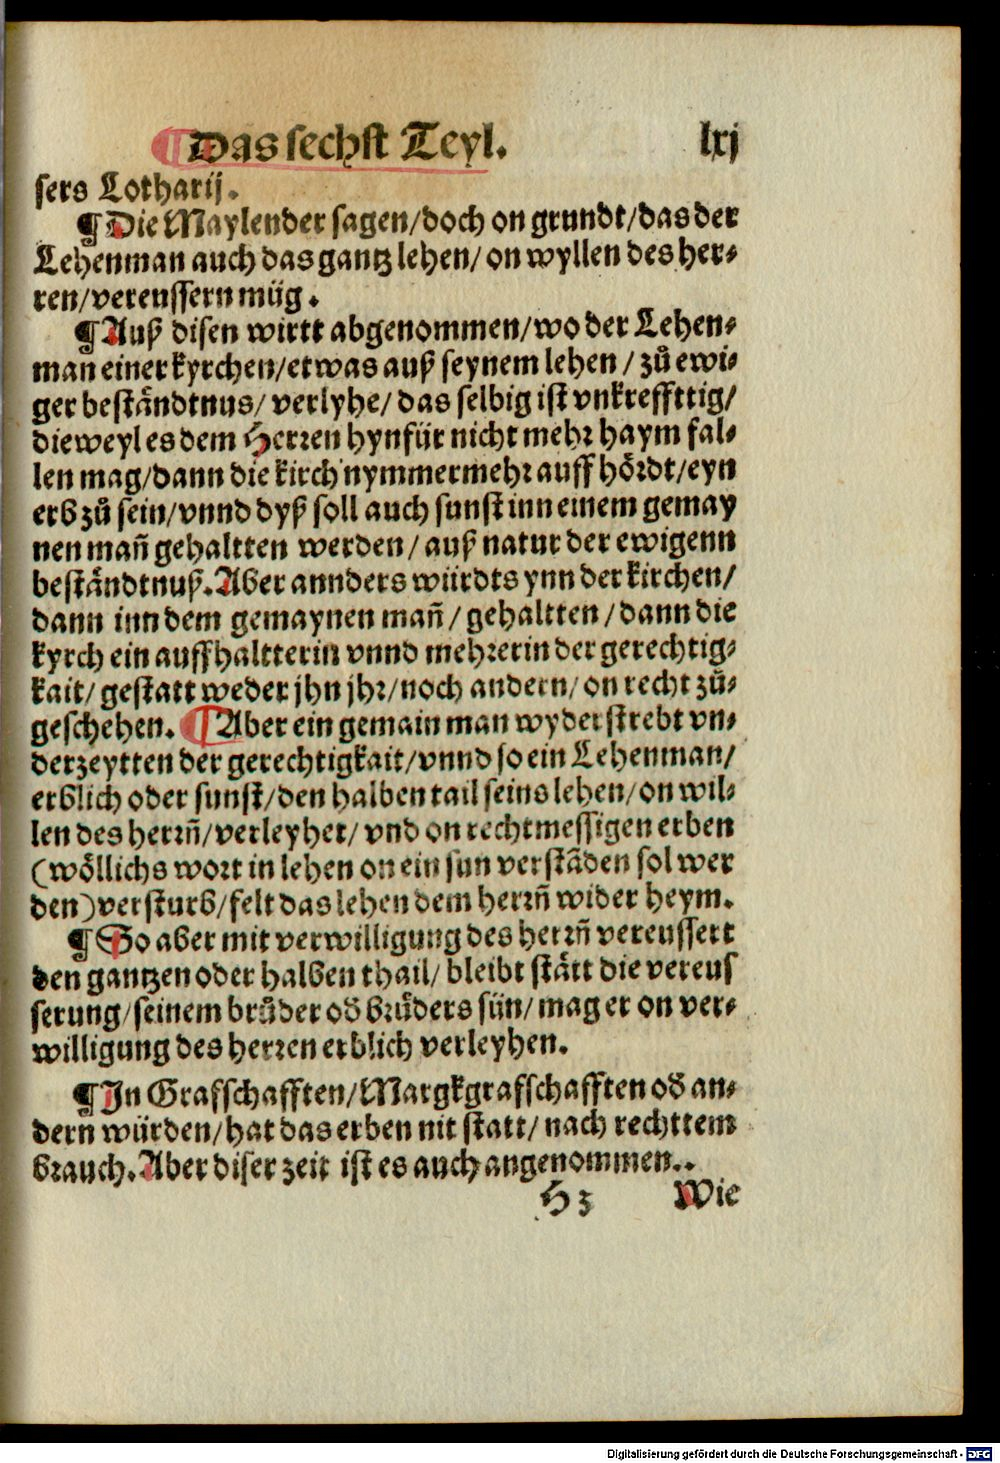 ¶Das sechst Teyl. lxj
sers Lotharij.
¶Die Maylender sagen/doch on grundt/das der
Lehenman auch das gantz lehen/on wyllen des her⸗
ren/vereussern müg.
¶Auß disen wirtt abgenommen/wo der Lehen⸗
man einer kyrchen/etwas auß seynem lehen/zů ewi⸗
ger beständtnus/verlyhe/das selbig ist vnkreffttig/
dieweyl es dem Herren hynfür nicht mehr haym fal⸗
len mag/dann die kirch nymmermehr auff hördt/eyn
erb zů sein/vnnd dyß soll auch sunst inn einem gemay
nen mañ gehaltten werden/auß natur der ewigenn
beständtnuß. Aber annders würdts ynn der kirchen/
dann inn dem gemaynen mañ/gehaltten/dann die
kyrch ein auffhaltterin vnnd mehrerin der gerechtig⸗
kait/gestatt weder jhn jhr/noch andern/on recht zů⸗
geschehen. ¶Aber ein gemain man wyderstrebt vn⸗
derzeytten der gerechtigkait/vnnd so ein Lehenman/
erblich oder sunst/den halben tail seins lehen/on wil⸗
len des herrñ/verleyhet/vnd on rechtmessigen erben
(wöllichs wort in lehen on ein sun verstãden sol wer
den)versturb/felt das lehen dem herrñ wider heym.
¶So aber mit verwilligung des herrñ vereussert
den gantzen oder halben thail/bleibt stätt die vereus
serung/seinem brůder oð brůders sün/mag er on ver⸗
willigung des herren erblich verleyhen.
¶In Grafschafften/Margkgrafschafften oð an⸗
dern würden/hat das erben nit statt/nach rechttem
brauch. Aber diser zeit ist es auch angenommen..
H 3 Wie
Digitalisierung gefördert durch die Deutsche Forschungsgemeinschaft - DFG